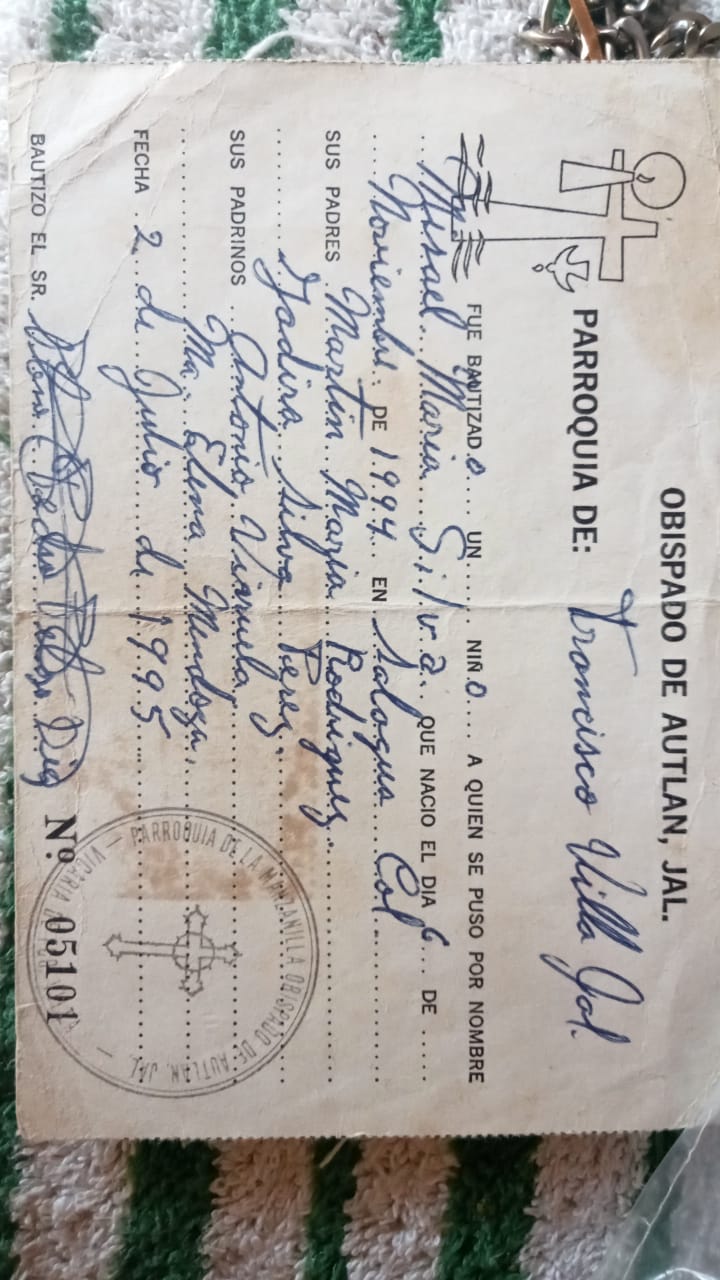 OBISPADO DE AUTLAN, JAL.
PARROQUIA DE: Francisco Villa Jal.
FUE BAUTIZADO UN NIÑO A QUIEN SE PUSO POR NOMBRE
Misael Maria Silva QUE NACIO EL DIA 6 DE
Noviembre DE 1994 EN Salagua Col
SUS PADRES Martin Maria Rodriguez
Yadira Silva Perez.
SUS PADRINOS Antonio Vizuela
Ma. Elena Mendoza.
FECHA 2 de Julio de 1995
BAUTIZO EL SR. Pedro
Nº 05101
PARROQUIA DE LA MANZANILLA OBISPADO DE AUTLAN, JAL.
VICARIA